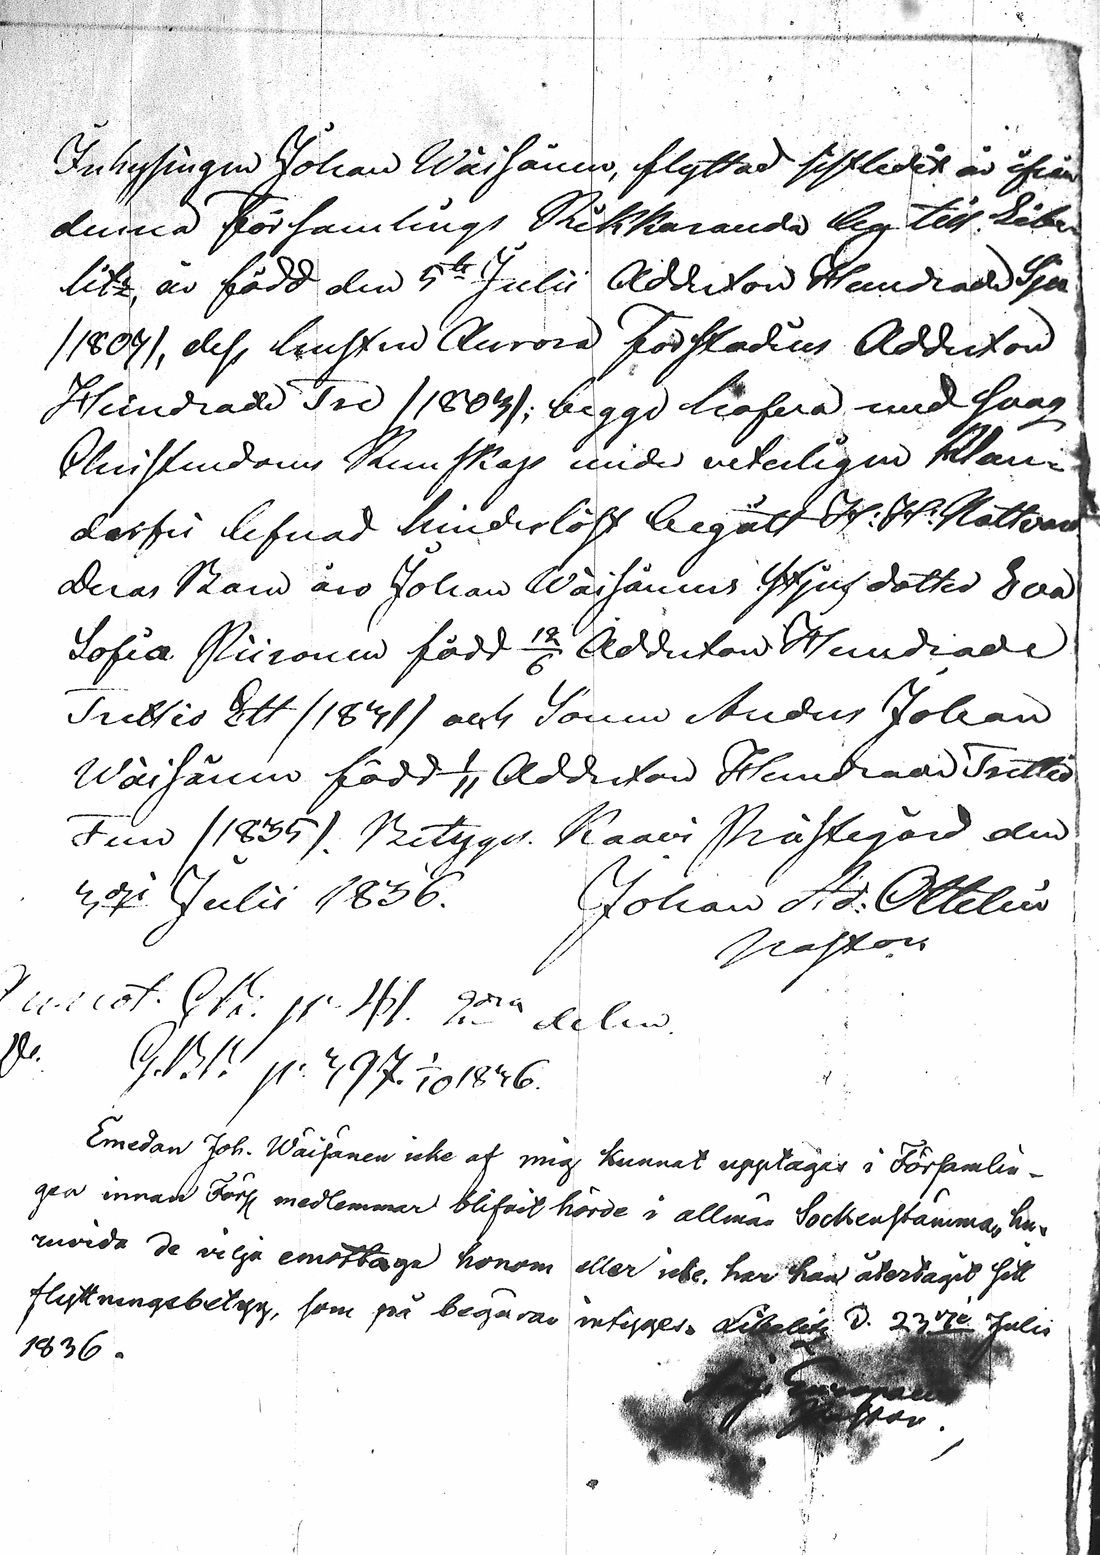 Inhysingen Johan Wäisänen, flyttad sistledit år ifrån
denna Församlings Rikkaranda by till Libe-
litz, är född den 5te Julii Adderton Hundrade Sju
/1807/, dess hustru Aurora Forstadius Adderton
Hundrade Tre /1803/; begge hafva med svag
Christendoms Kunskap under veterligen klan-
derfri lefnad hinderlöst begått H: H: Nattvard
deras Barn äro Johan Wäisänens Styfdotter Eva
Sofia Piironen född 12/6 Adderton Hundrade
Trettio Ett /1831/ och Sonen Anders Johan
Wäisänen född 1/11 Adderton Hundrade Trettio
Fem /1835/. Betygar. Kaavi Prästegård den
3dje Julii 1836. Johan Ad: Ottelin
Pastor
Annot. p. 41. 2dra delen.
p. 397. 1/10 1836.
Emedan Joh. Wäisänen icke af mig kunnat upptagas i Församlin-
gen innan Förs medlemmar blifvit hörde i allmän Sockenstämma, hu-
ruvida de vilja emottaga honom eller icke, har han återtagit sitt
flyttningsbetyg, som på begäran intygas. Libelitz d. 23dje Julii
1836.
Europaeus
Pastor.